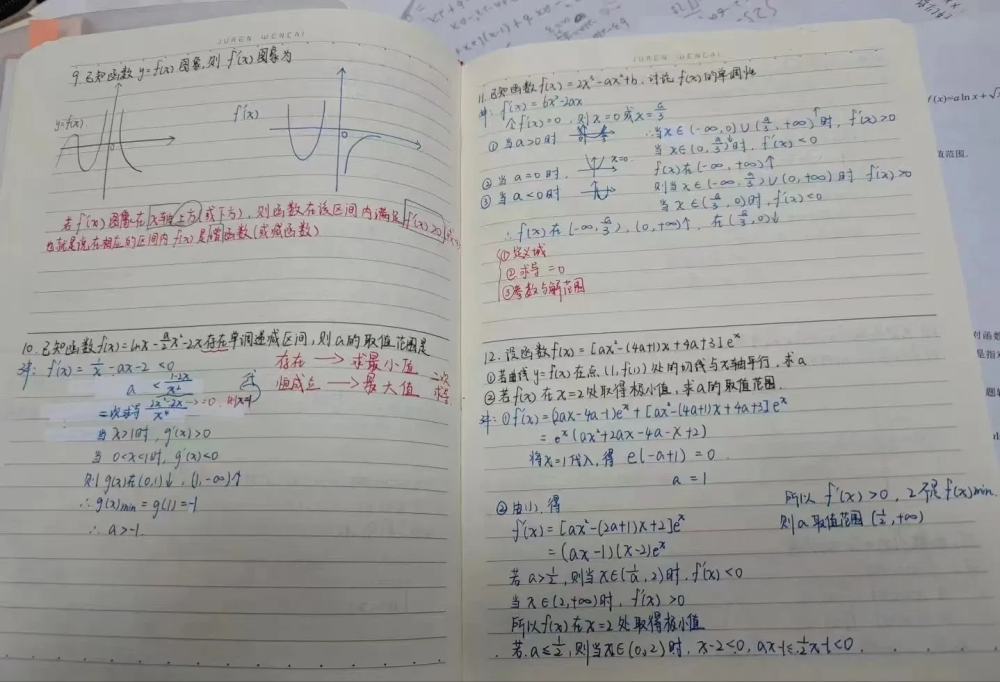 JUREN WENCAI
9.已知函数y=f(x)图象,则f'(x)图象为
y=f(x)
f'(x)
若f'(x)图象在x轴上方(或下方),则函数在该区间内满足f'(x)>0
也就是说在相应的区间内f(x)是增函数(或减函数)
10.已知函数f(x)=lnx-a/2x²-2x存在单调递减区间,则a的取值范围是
解:f'(x)=1/x-ax-2<0
存在→求最小值
a<(1-2x)/x²
恒成立→最大值
二次求导
二次求导(2x²-2x)/x⁴=0,则x=1
当x>1时,g'(x)>0
当0<x<1时,g'(x)<0
则g(x)在(0,1)↓,(1,-∞)↑
∴g(x)min=g(1)=-1
∴a>-1
JUREN WENCAI
11.已知函数f(x)=2x³-ax²+b,讨论f(x)的单调性
解:f'(x)=6x²-2ax
令f'(x)=0,则x=0或x=a/3
①当a>0时
∴当x∈(-∞,0)∪(a/3,+∞)时,f'(x)>0
当x∈(0,a/3)时,f'(x)<0
②当a=0时
x=0
f(x)在(-∞,+∞)↑
③当a<0时
则当x∈(-∞,a/3)∪(0,+∞)时 f'(x)>0
当x∈(a/3,0)时,f'(x)<0
∴f(x)在(-∞,a/3),(0,+∞)↑,在(a/3,0)↓
①定义域
②求导=0
③参数与解范围
12.设函数f(x)=[ax²-(4a+1)x+4a+3]eˣ
①若曲线y=f(x)在点(1,f(1))处的切线与x轴平行,求a
②若f(x)在x=2处取得极小值,求a的取值范围.
解:①f'(x)=(2ax-4a-1)eˣ+[ax²-(4a+1)x+4a+3]eˣ
=eˣ(ax²+2ax-4a-x+2)
将x=1代入,得 e(-a+1)=0
a=1
②由(1),得
f'(x)=[ax²-(2a+1)x+2]eˣ
=(ax-1)(x-2)eˣ
若a>1/2,则当x∈(1/a,2)时,f'(x)<0
当x∈(2,+∞)时,f'(x)>0
所以f(x)在x=2处取得极小值
若a≤1/2,则当x∈(0,2)时,x-2<0,ax-1≤1/2x-1<0
所以f'(x)>0,2不是f(x)min
则a取值范围(1/2,+∞)
f(x)=alnx+√
取值范围.